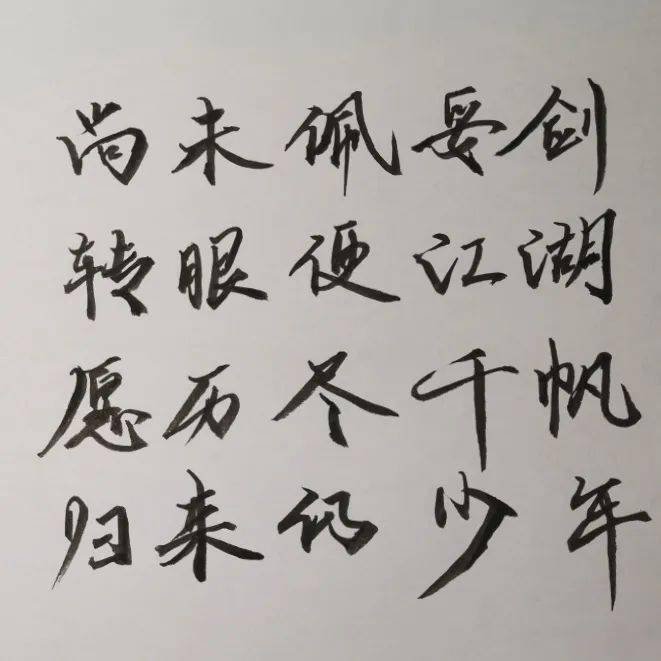 尚未佩妥剑
转眼便江湖
愿历尽千帆
归来仍少年